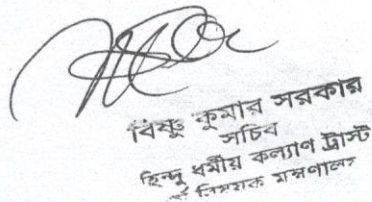 বিষ্ণু কুমার সরকার
সচিব
হিন্দু ধর্মীয় কল্যাণ ট্রাস্ট
বিষয়ক মন্ত্রণালয়